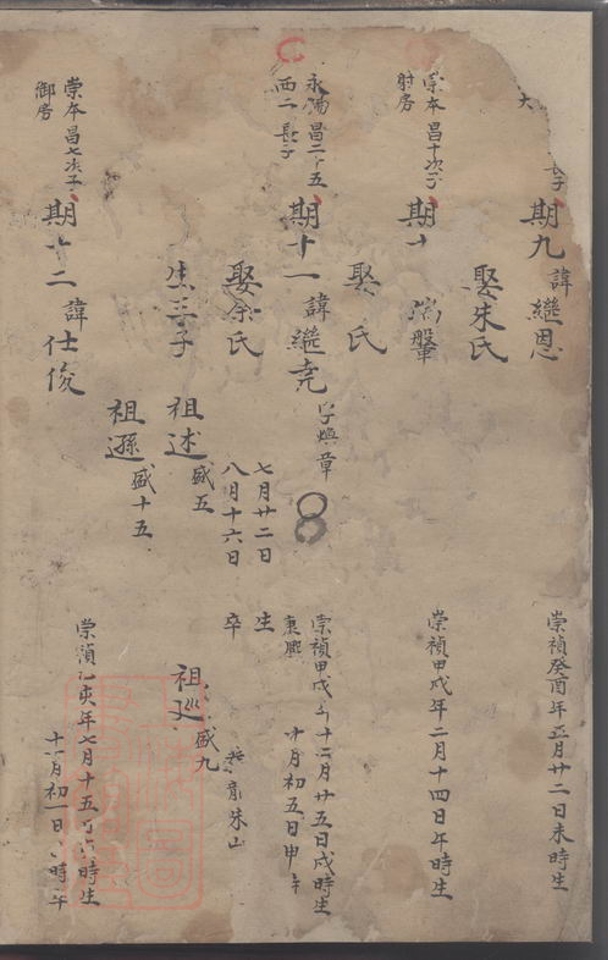 大
長子
期九
諱繼恩
崇禎癸酉年正月廿二日未時生
娶朱氏
崇本昌十次子
射房
期十
崇禎甲戌年二月十四日午時生
娶 氏
永陽昌二十五
西二長子
期十一
諱繼堯
字煥章
崇禎甲戌年十二月廿五日戌時生
康熙 十月初五日申
娶余氏
七月廿二日 生
八月十六日 卒
生三子
祖述
盛五
祖巡
盛九
朱山
祖遜
盛十五
崇本昌七次子
御房
期十二
諱仕俊
崇禎乙亥年七月十五日 時生
月初一日 時